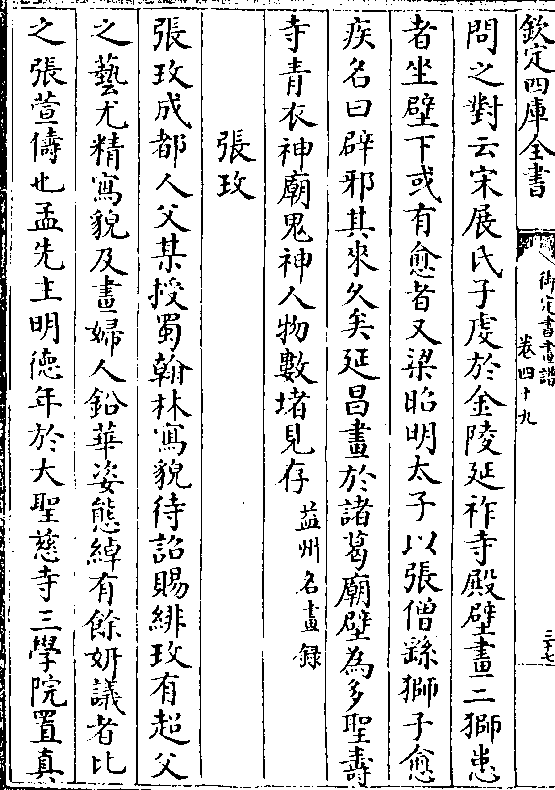 欽定四庫全書
御定書畫譜
卷四十九
三七
問之對云宋展氏子虔於金陵延祚寺殿壁畫二獅患
者坐壁下或有愈者又梁昭明太子以張僧繇獅子愈
疾名曰辟邪其來久矣延昌畫於諸葛廟壁為多聖壽
寺青衣神廟鬼神人物數堵見存益州名畫錄
張玫
張玫成都人父某授蜀翰林寫貌待詔賜緋玫有超父
之藝尤精寫貌及畫婦人鉛華姿態綽有餘妍議者比
之張萱儔也孟先主明德年於大聖慈寺三學院置真